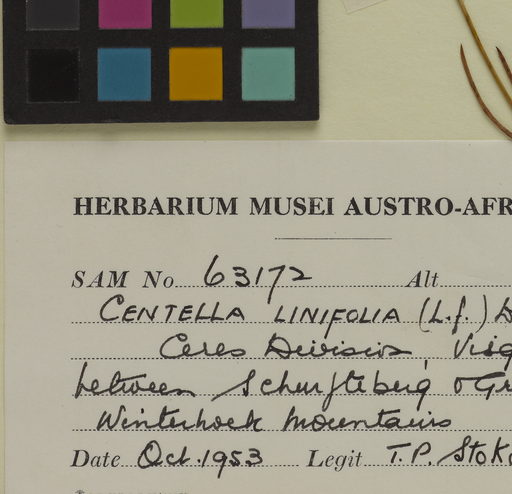 HERBARIUM MUSEI AUSTRO-AFR
SAM No 63172 Alt
CENTELLA LINIFOLIA (L.f.) D
Ceres Division, Visg
between Schurfteberg & Gr
Winterhoek Mountains
Date Oct. 1953 Legit T.P. Stoko